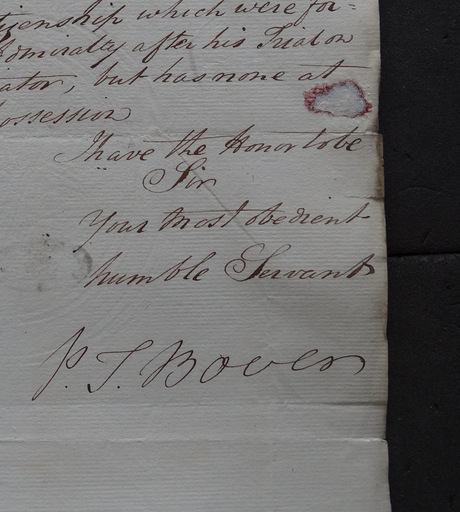 tizenship which were for=
Admiralty after his Trial on
ator, but has none at
ossession
I have the Honor to be
Sir
Your Most obedient
humble Servant
P. T. Bover